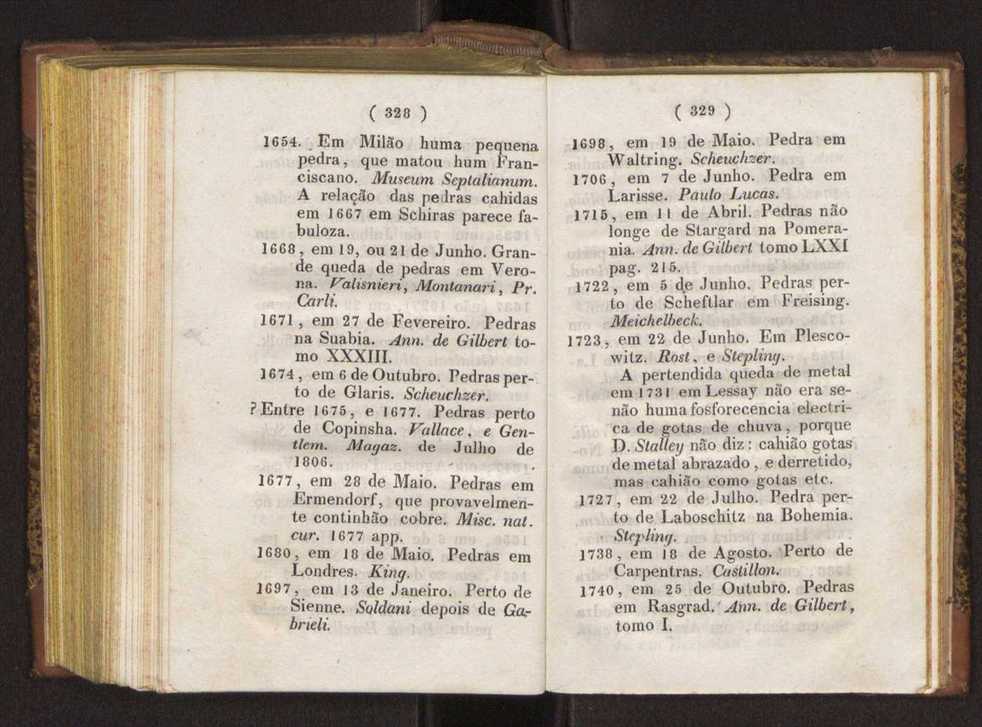 ( 328 )
1654. Em Milão huma pequena
pedra, que matou hum Fran-
ciscano. Museum Septalianum.
A relação das pedras cahidas
em 1667 em Schiras parece fa-
buloza.
1668, em 19, ou 21 de Junho. Gran-
de queda de pedras em Vero-
na. Valisnieri, Montanari, Pr.
Carli.
1671, em 27 de Fevereiro. Pedras
na Suabia. Ann. de Gilbert to-
mo XXXIII.
1674, em 6 de Outubro. Pedras per-
to de Glaris. Scheuchzer.
? Entre 1675, e 1677. Pedras perto
de Copinsha. Vallace, e Gen-
tlem. Magaz. de Julho de
1806.
1677, em 28 de Maio. Pedras em
Ermendorf, que provavelmen-
te continhão cobre. Misc. nat.
cur. 1677 app.
1680, em 18 de Maio. Pedras em
Londres. King.
1697, em 13 de Janeiro. Perto de
Sienne. Soldani depois de Ga-
brieli.
( 329 )
1698, em 19 de Maio. Pedra em
Waltring. Scheuchzer.
1706, em 7 de Junho. Pedra em
Larisse. Paulo Lucas.
1715, em 11 de Abril. Pedras não
longe de Stargard na Pomera-
nia. Ann. de Gilbert tomo LXXI
pag. 215.
1722, em 5 de Junho. Pedras per-
to de Scheftlar em Freising.
Meichelbeck.
1723, em 22 de Junho. Em Plesco-
witz. Rost, e Stepling.
A pertendida queda de metal
em 1731 em Lessay não era se-
não huma fosforecencia electri-
ca de gotas de chuva, porque
D. Stalley não diz: cahião gotas
de metal abrazado, e derretido,
mas cahião como gotas etc.
1727, em 22 de Julho. Pedra per-
to de Laboschitz na Bohemia.
Stepling.
1738, em 18 de Agosto. Perto de
Carpentras. Castillon.
1740, em 25 de Outubro. Pedras
em Rasgrad. Ann. de Gilbert,
tomo I.